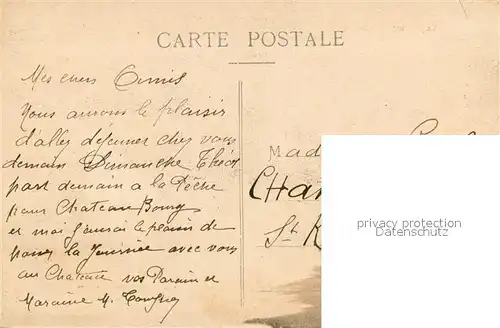 CARTE POSTALE
Mes chers Amis
Nous aurons le plaisir
d'aller dejeuner chez vous
demain Dimanche
part demain a la Pêche
pour Chateau Bourg
et moi j'aurai le plaisir de
passer la Journée avec vous
au Chateau vos Parain et
Maraine M.
Mad
CHA
St
privacy protection
Datenschutz